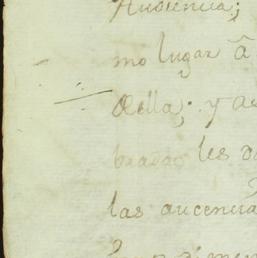 Audiencia;
mo lugar â
della; y a
bradas les d
las aucencia